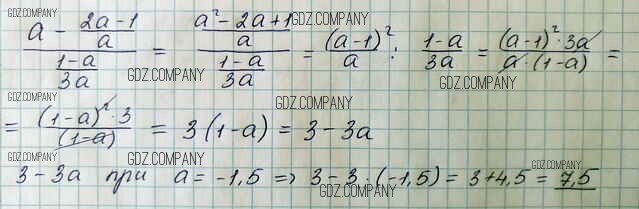 (a - (2a-1)/a) / ((1-a)/3a) = ((a² - 2a + 1)/a) / ((1-a)/3a) = (a-1)²/a : (1-a)/3a = ((a-1)² · 3a)/(a · (1-a)) =
= ((1-a)² · 3)/(1-a) = 3(1-a) = 3 - 3a
3 - 3a при a = -1,5 => 3 - 3 · (-1,5) = 3 + 4,5 = 7,5
GDZ.COMPANY
GDZ.COMPANY
GDZ.COMPANY
GDZ.COMPANY
GDZ.COMPANY
GDZ.COMPANY
GDZ.COMPANY
GDZ.COMPANY
GDZ.COMPANY
GDZ.COMPANY